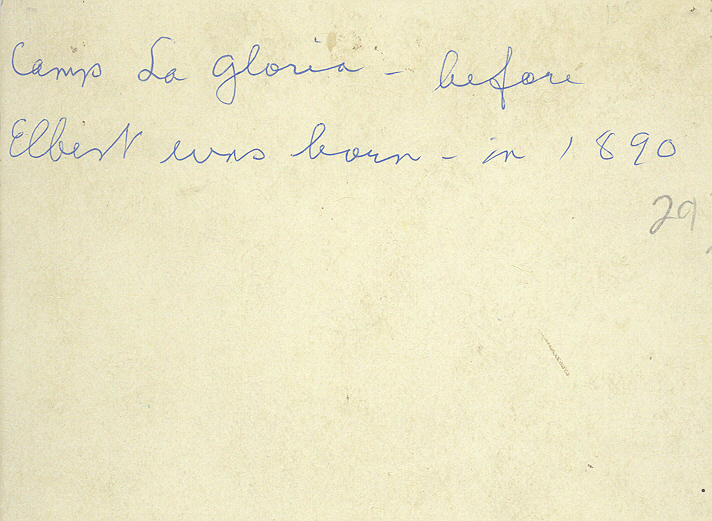 Camp La Gloria - before
Elbert was born - in 1890
29